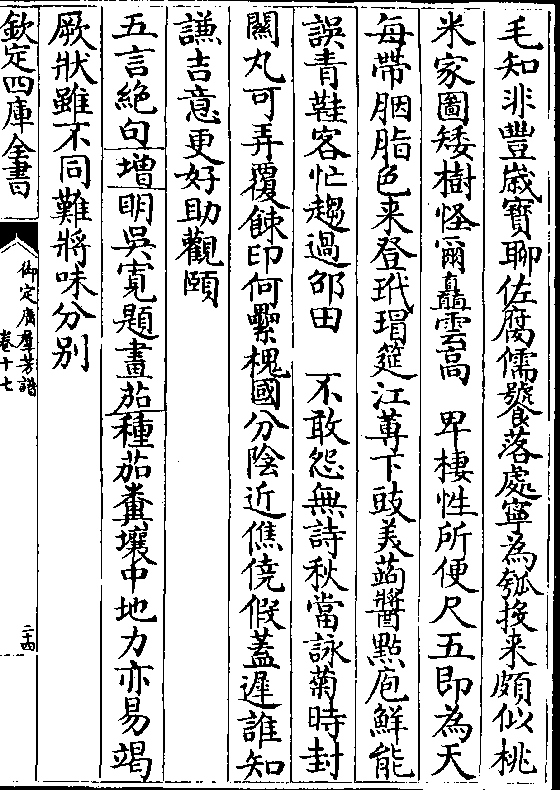 毛知非豐歲寶聊佐腐儒餐落處寧為瓠挼来頗似桃
米家圖矮樹怪爾矗雲高　卑棲性所便尺五即為天
每帶胭脂色来登玳瑁筵江蓴下豉美蒟醬㸃庖鮮能
誤青鞋客忙趨過邵田　不敢怨無詩秋當詠菊時封
關丸可弄覆餗印何纍槐國分陰近僬僥假葢遲誰知
謙吉意更好助觀頤
五言絶句增明吳寛題畫茄種茄糞壤中地力亦易竭
厥狀雖不同難將味分别
欽定四庫全書
御定廣羣芳譜
卷十七
二十四